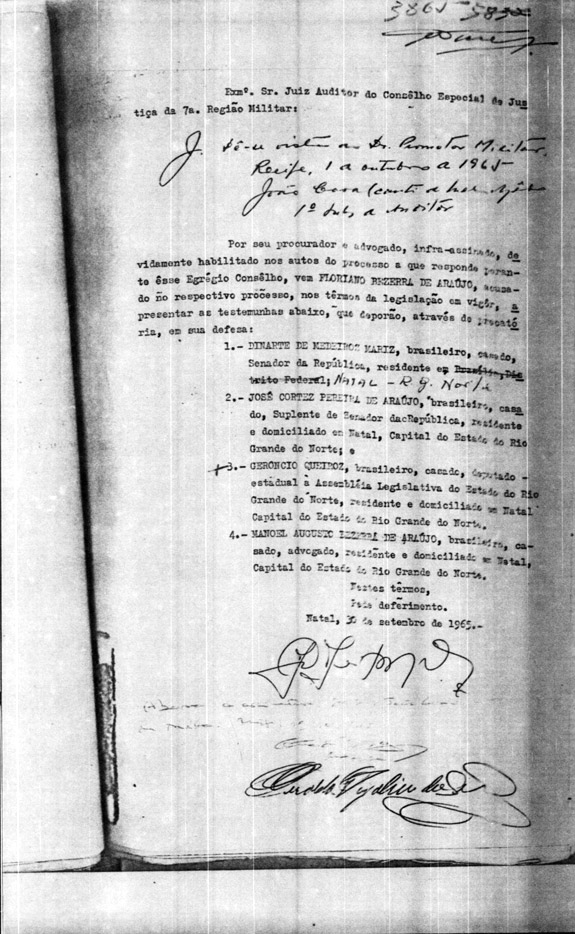 3865 5832
Exmº. Sr. Juiz Auditor do Consêlho Especial de Jus
tiça da 7a. Região Militar:
J. Dê-se vista ao Dr. Promotor Militar.
Recife, 1 de outubro de 1965
João
1º Sub, de Auditor
Por seu procurador e advogado, infra-assinado, de
vidamente habilitado nos autos do processo a que responde peran-
te êsse Egrégio Consêlho, vem FLORIANO BEZERRA DE ARAÚJO, acusa-
do no respectivo processo, nos têrmos da legislação em vigôr, a
presentar as testemunhas abaixo, que deporão, através de precató
ria, em sua defesa:
1.- DINARTE DE MEDEIROS MARIZ, brasileiro, casado,
Senador da República, residente em Brasília, Dis
trito Federal; NATAL - R.G. Norte
2.- JOSÉ CORTEZ PEREIRA DE ARAÚJO, brasileiro, casa
do, Suplente de Senador da República, residente
e domiciliado em Natal, Capital do Estado do Rio
Grande do Norte; e
3.- GERONCIO QUEIROZ, brasileiro, casado, deputado -
estadual à Assembléia Legislativa do Estado do Rio
Grande do Norte, residente e domiciliado em Natal
Capital do Estado do Rio Grande do Norte.
4.- MANOEL AUGUSTO BEZERRA DE ARAÚJO, brasileiro, ca-
sado, advogado, residente e domiciliado em Natal,
Capital do Estado do Rio Grande do Norte.
Nestes têrmos,
Pede deferimento.
Natal, 30 de setembro de 1965.-